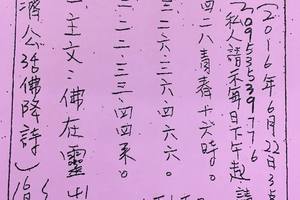 (2016年6月22日3点
0953539776
(私人請示每日下午起請
四二八青春十六時。
三二六三六四六六。
二一二二三三四四来。
主文:佛在靈山
濟公活佛降詩)